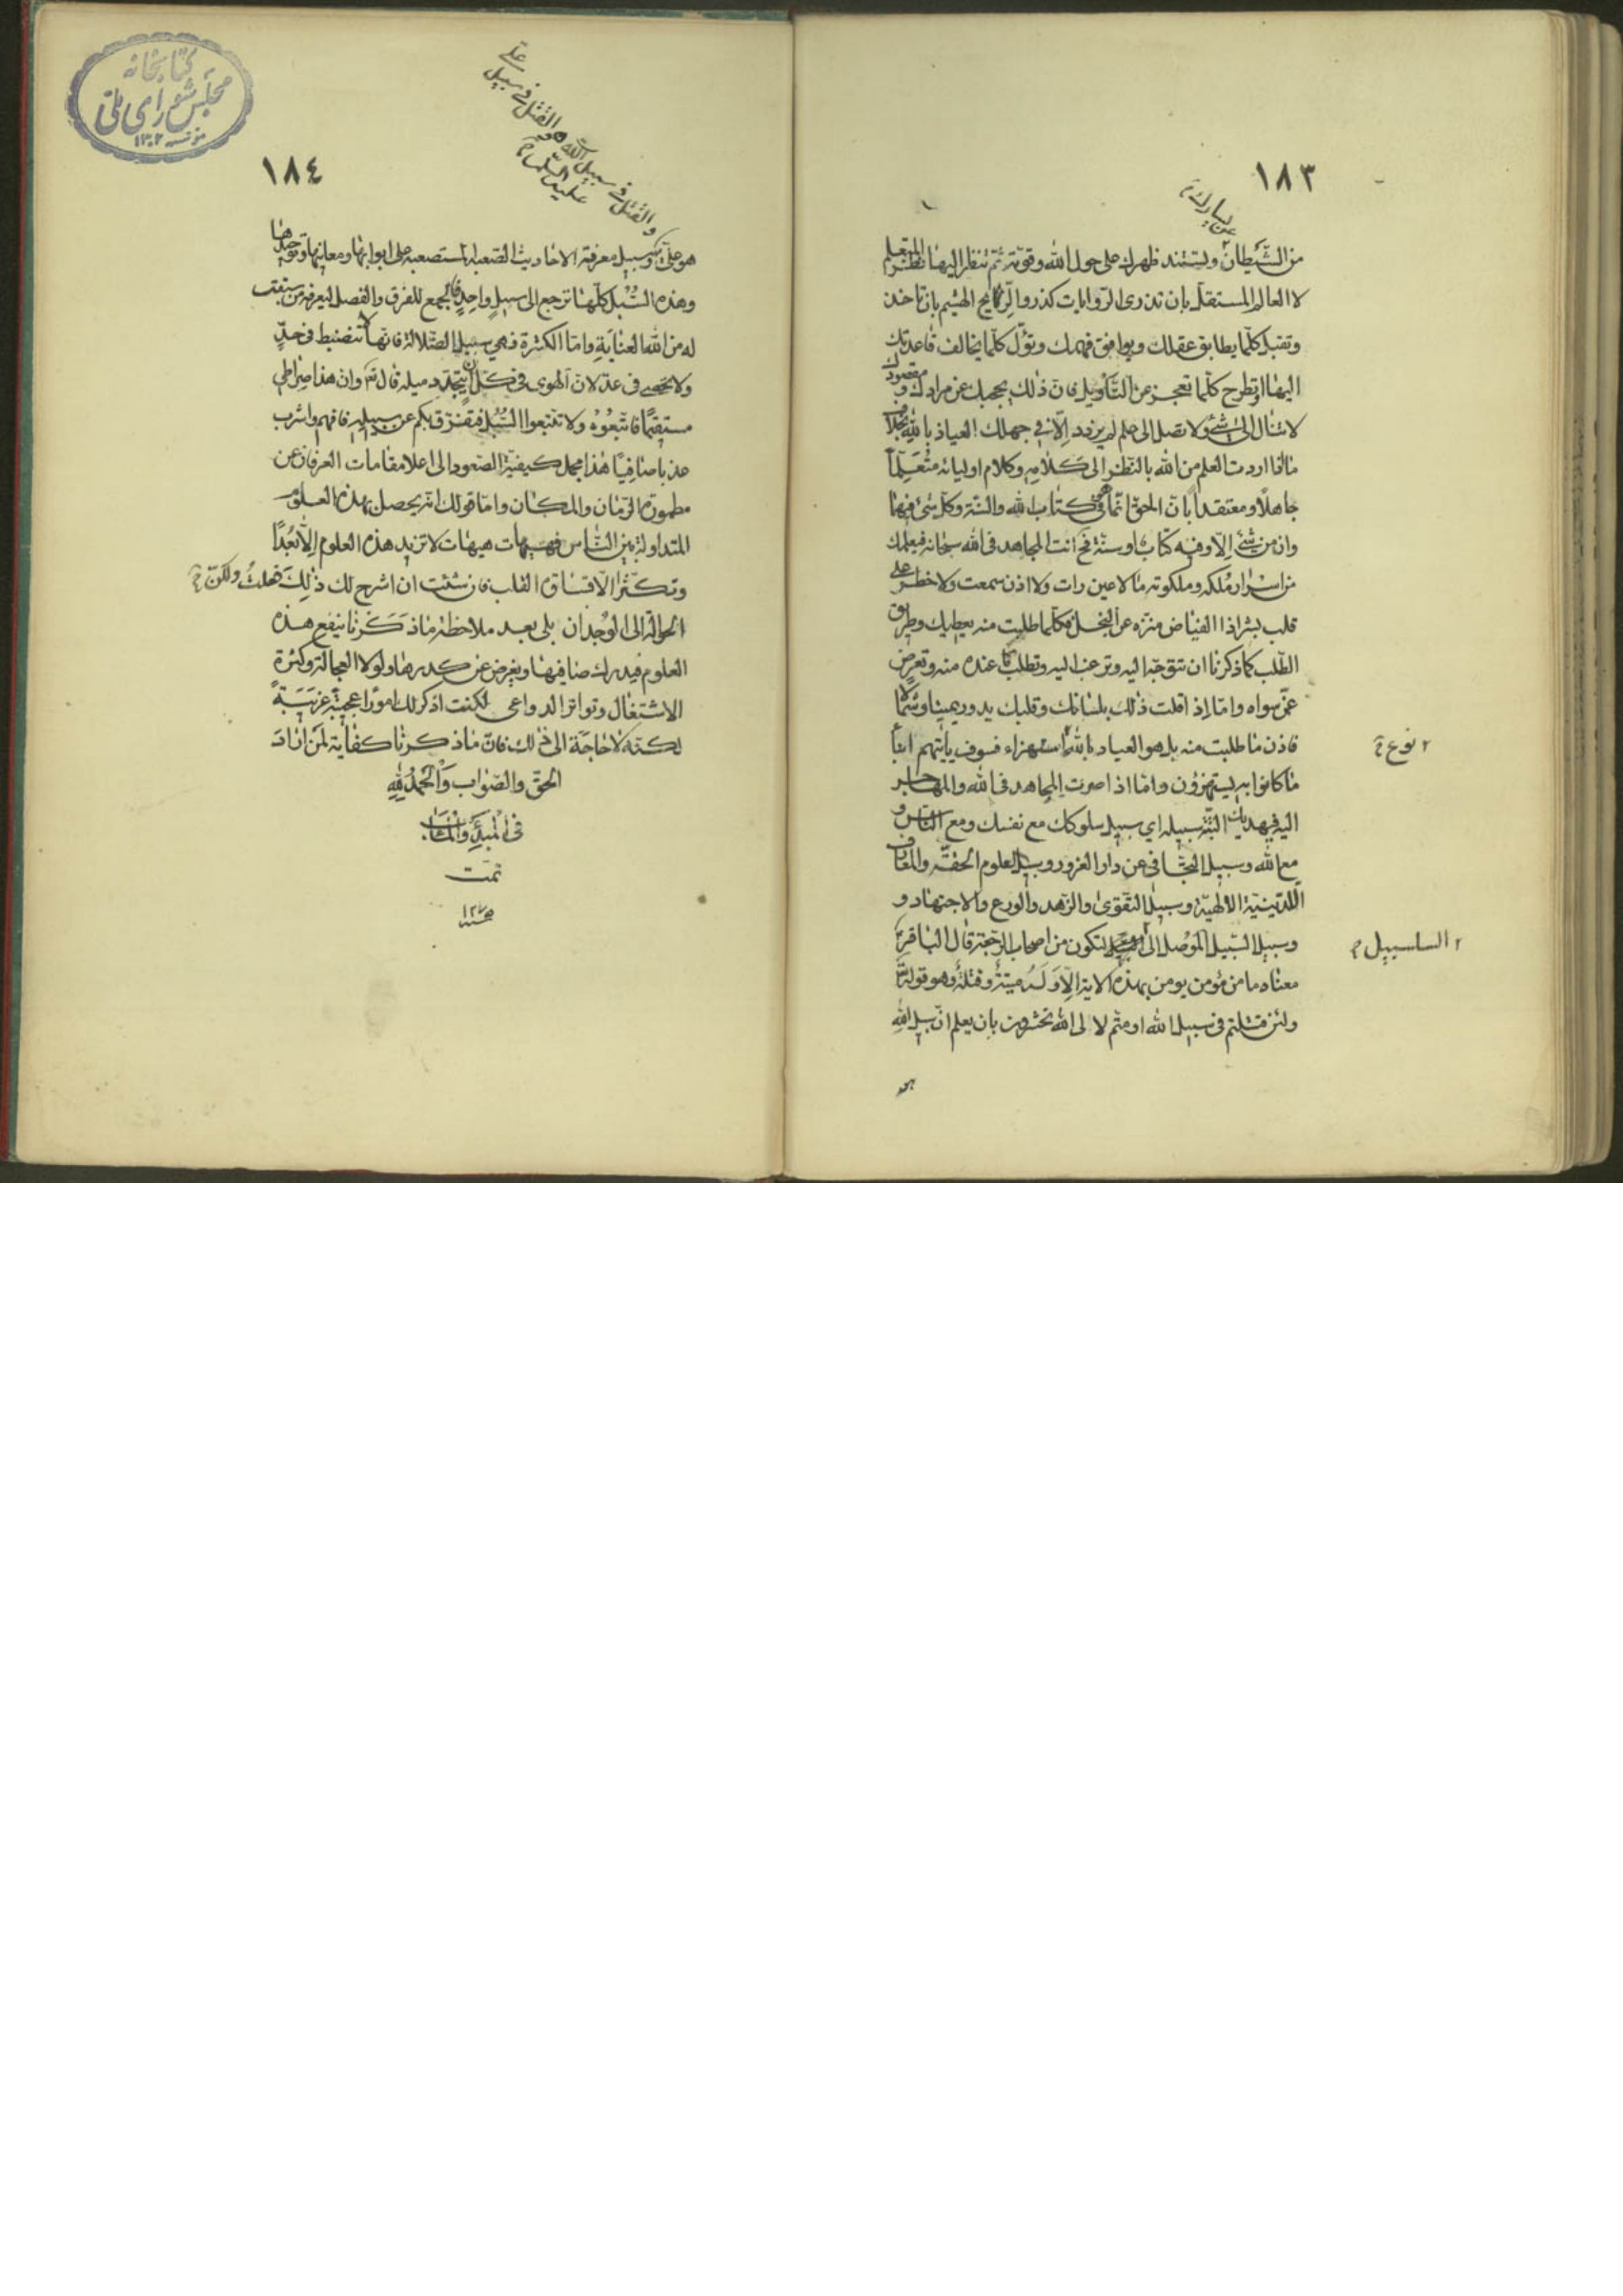 ١٨٣
عن يسارك
من الشيطان ولتستند ظهرك على حول الله وقوته ثم تنظر اليها نظر المتعلم
لا العالم المستقل بان تذري الروايات كذرو الريح الهشيم بان تاخذ
وتقبل كلما يطابق عقلك ويوافق فهمك وتؤل كلما يخالف قاعدتك
اليها او تطرح كلما تعجز عن التأويل فان ذلك يحجبك عن مرادك ومقصودك
لا تنال الى شئ ولا تصل الى علم لم يزدد الا في جهلك العياذ بالله بخلاف
ما اذا اردت العلم من الله بالنظر الى كلامه وكلام اوليائه متعلماً
جاهلاً ومعتقداً بان الحق انما في كتاب الله والسنة وكل شئ فيهما
وان من شئ الا وفيه كتاب او سنة فح انت المجاهد في الله سبحانه فيعلمك
من اسرار ملكه وملكوته ما لا عين رات ولا اذن سمعت ولا خطر على
قلب بشر اذ الفياض منزه عن البخل فكلما طلبت منه يعطيك وطريق
الطلب كما ذكرنا ان تتوجه اليه وترغب اليه وتطلب ما عنده منه وتعرض
عمن سواه واما اذ اقلت ذلك بلسانك وقلبك يدور يمينا وشمالا
فاذن ما طلبت منه بل هو العياذ بالله استهزاء فسوف ياتيهم انبأ
نوع
ما كانوا به يستهزؤن واما اذا صرت المجاهد في الله والمهاجر
اليه فيهديك البتة سبيله اي سبيل سلوكك مع نفسك ومع الناس و
مع الله وسبيل التجافي عن دار الغرور وسبيل العلوم الحقة والمعارف
اللدينية الالهية وسبيل التقوى والزهد والورع والاجتهاد و
وسبيل السبيل الموصل الى لتكون من اصحاب الرجعة قال الباقر
السلسبيل
معناه ما من مؤمن يومن بهذه الاية الا وله ميتة وقتلة وهو قوله تع
ولئن قتلتم في سبيل الله او متم لا لى الله تحشرون بان يعلم ان سبيل الله
١٨٤
كتابخانه
مجلس شوراى ملى
مؤسسه ١٣٠٢
والقتل في سبيل الله والقتل في سبيل علي
عليه السلام
هو علي وسبيل معرفة الاحاديث الصعبة المستصعبة على ابوابها ومعانيها وتوجيهها
وهذه السبل كلها ترجع الى سبيل واحد فالجمع للفرق والفصل ليعرفه من سبقت
له من الله العناية واما الكثرة فهي سبيل الضلالة فانها لا تنضبط في حد
ولا تحصى في عد لان الهوى في كل ان يتجدد ميله قال تع وان هذا صراطي
مستقيما فاتبعوه ولا تتبعوا السبل فتفرق بكم عن سبيله فافهم واشرب
عذبا صافيا هذا مجمل كيفية الصعود الى اعلا مقامات العرفان عن
مطمورة الزمان والمكان واما قولك انه يحصل بهذه العلوم
المتداولة بين الناس فهيهات هيهات لا تزيد هذه العلوم الا بعدا
وتكثرا الا قساوة القلب فان شئت ان اشرح لك ذلك فعلت ولكن
الحوالة الى الوجدان بلى بعد ملاحظة ما ذكرنا ينفع هذه
العلوم فيدرك صافيها ويغرض عن كدرها ولولا العجالة وكثرة
الاشتغال وتواتر الدواعي لكنت اذكر لك امورا عجيبة غريبة
لكنه لا حاجة الى ذلك فان ما ذكرنا كفاية لمن اراد
الحق والصواب والحمد لله
في المبدء والمئاب
تمت